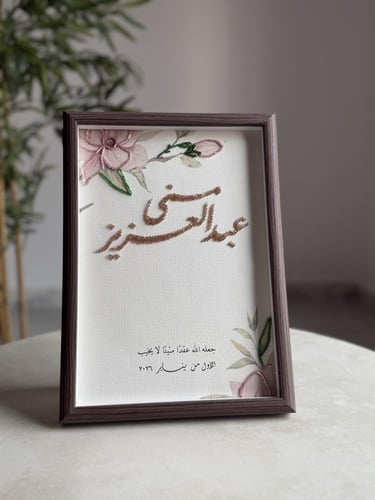 منى
عبدالعزيز
جعله الله عقدًا متينًا لا يخيب
الأول من يناير ٢٠٢٦